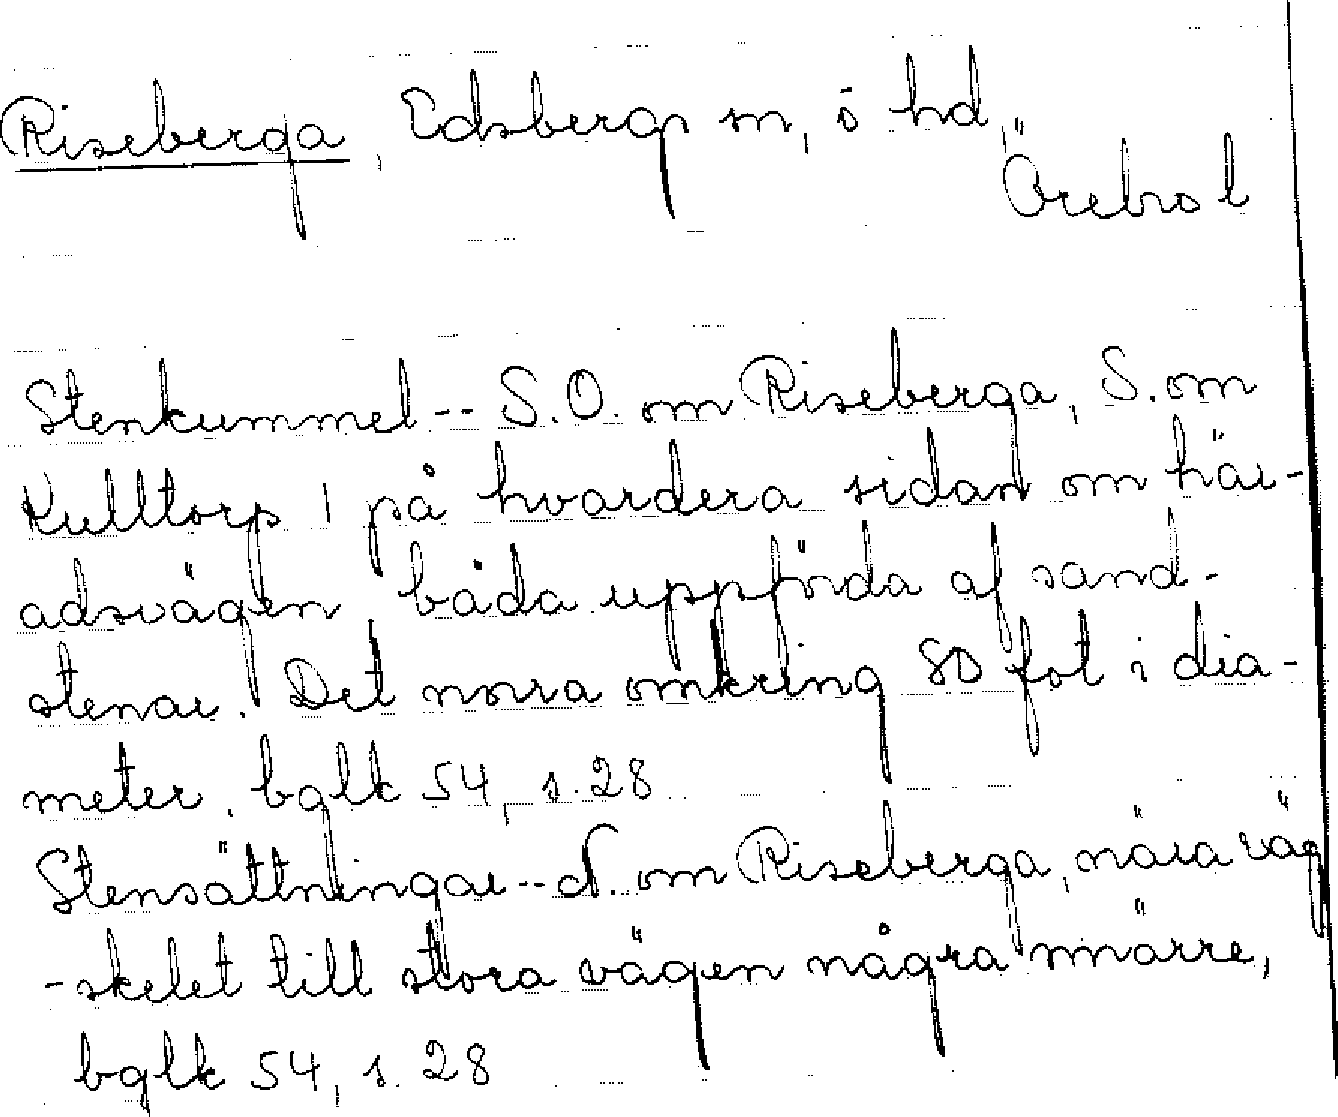 Riseberga, Edsbergs sn, ö hd,
Örebro l
Stenkummel -- S.O. om Riseberga, S. om
Kulltorp 1 på hvardera sidan om här-
adsvägen båda uppförda af sand-
stenar. Det norra omkring 80 fot i dia-
meter. bglk 54, s. 28
Stensättningar -- N. om Riseberga, nära väg
-skelet till stora vägen några mindre,
bglk 54, s. 28